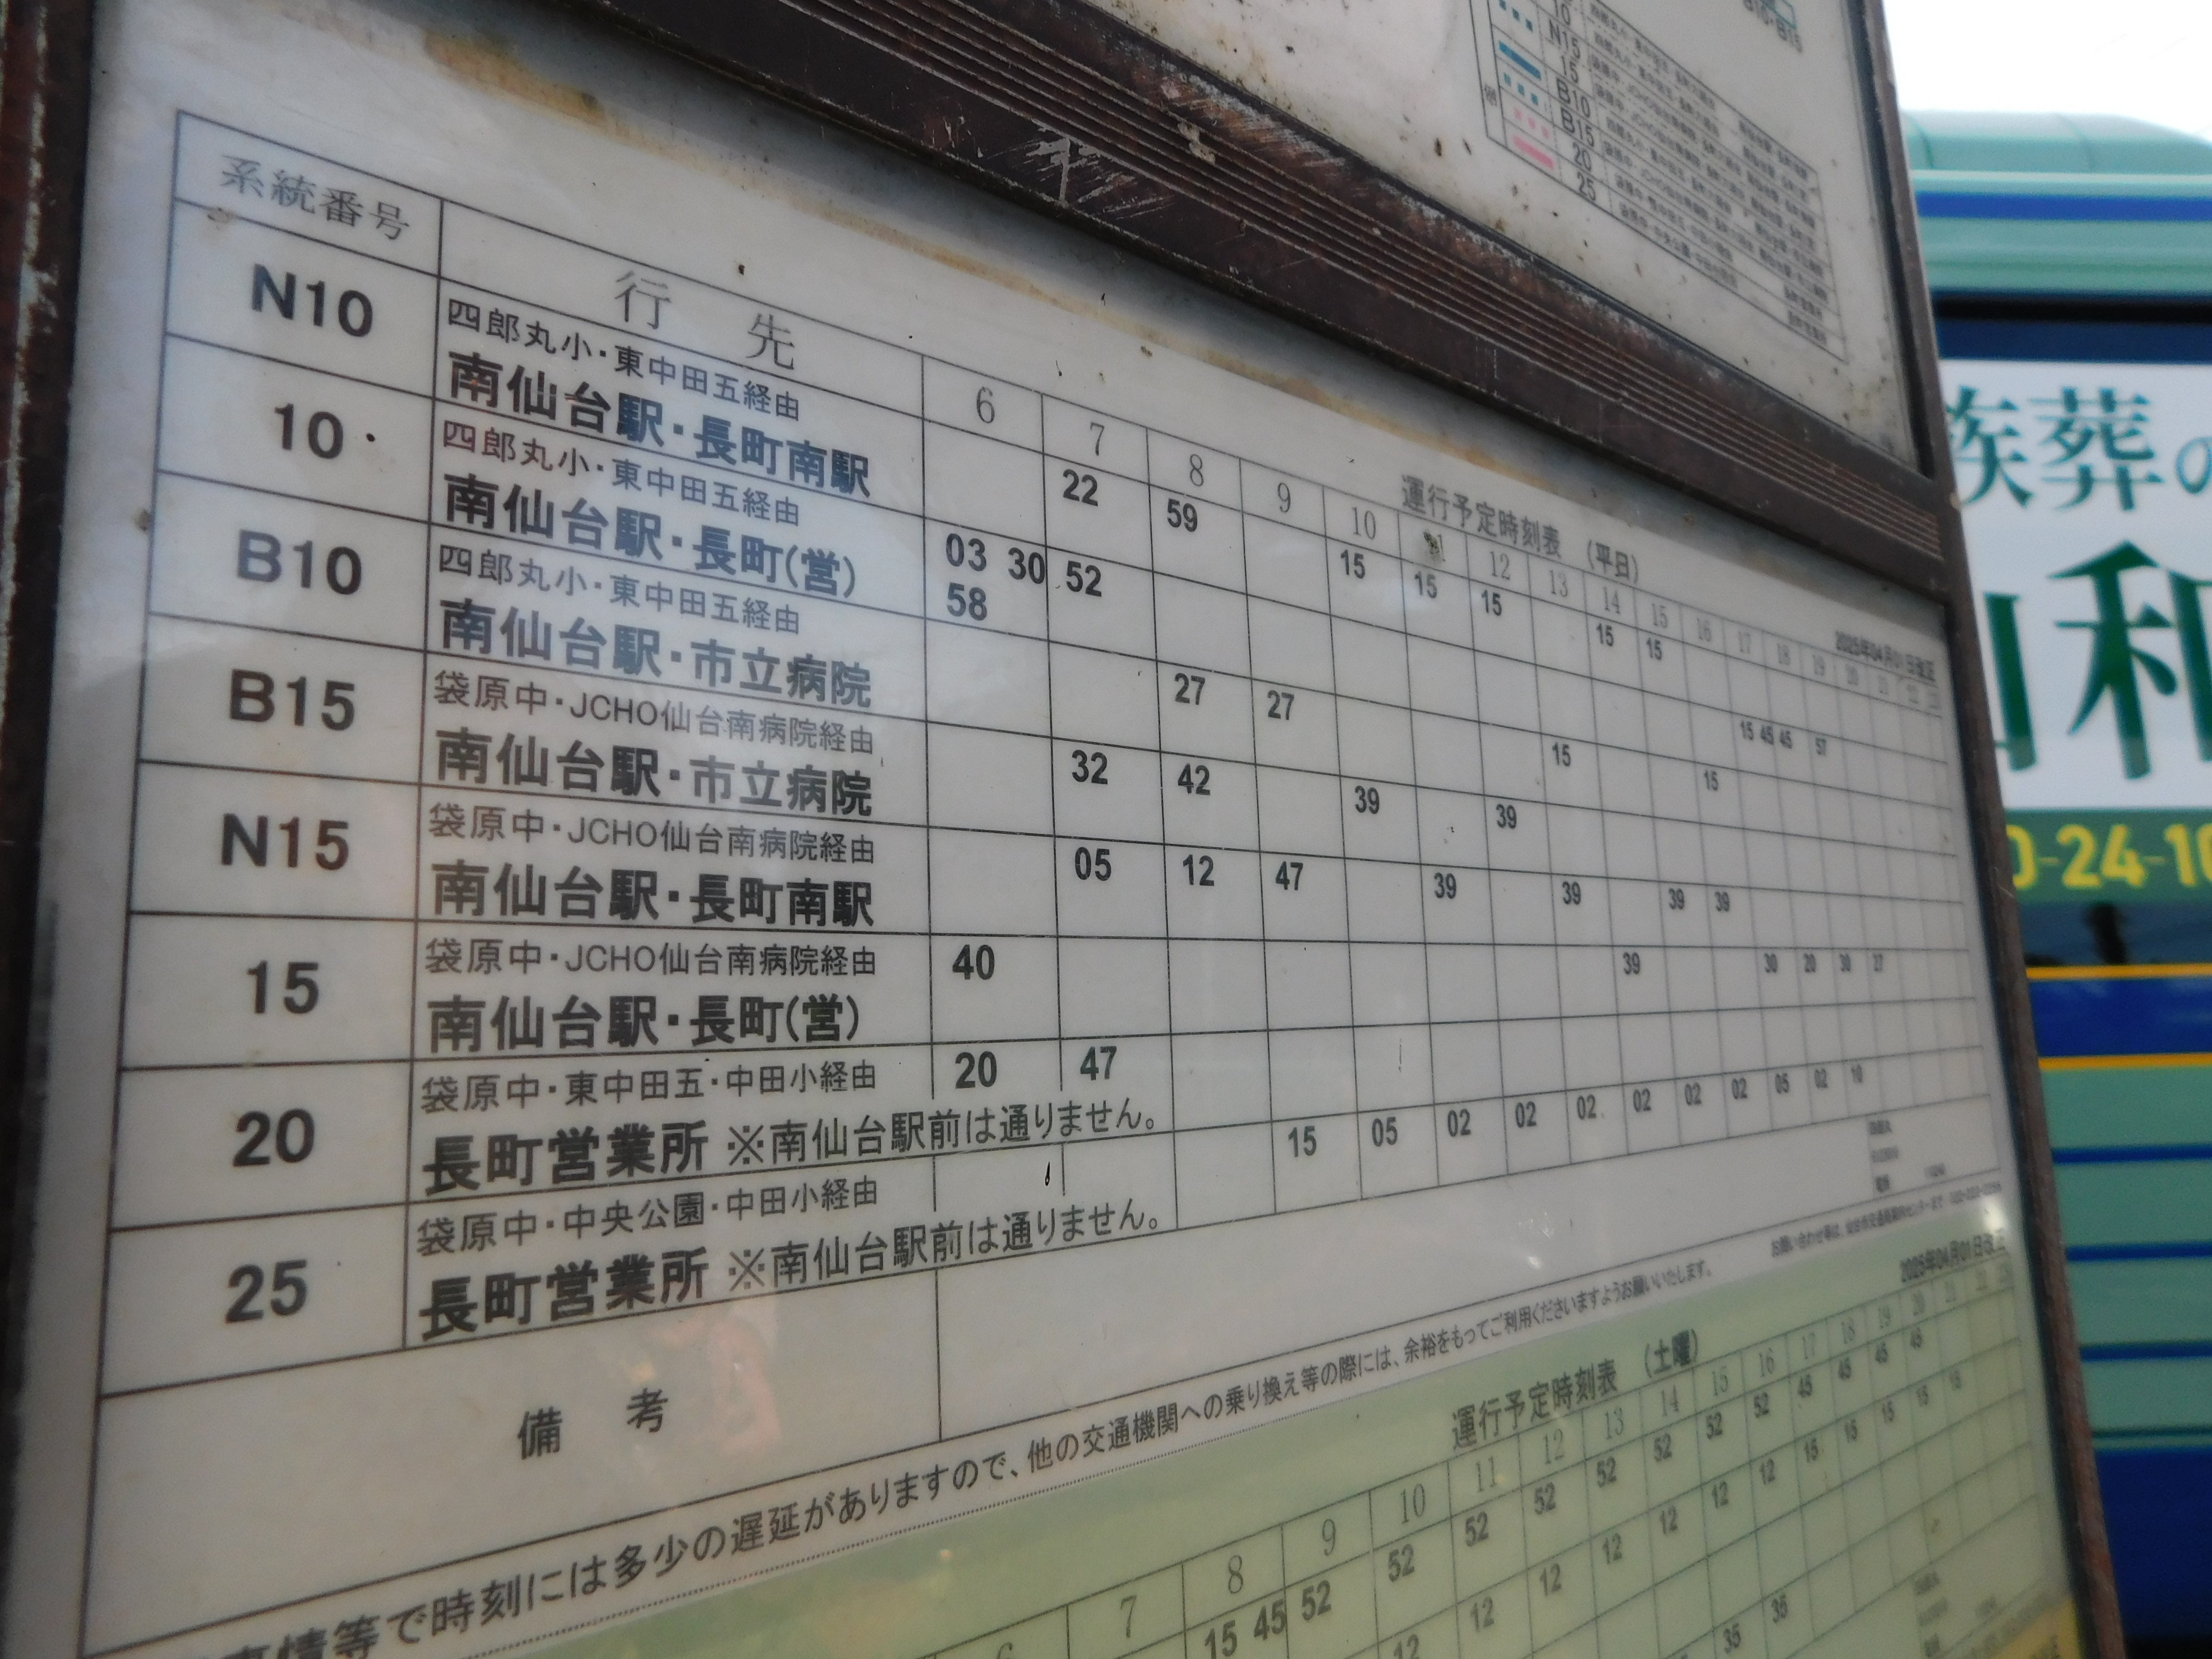 N15
15
B10
B15
20
25
系統番号 行先 運行予定時刻表 (平日)
2025年04月01日改正
6 7 8 9 10 11 12 13 14 15 16 17 18 19 20 21 22 23
N10 四郎丸小・東中田五経由
南仙台駅・長町南駅 22 59 15 15 15 15 15
10 四郎丸小・東中田五経由
南仙台駅・長町(営) 03 30 52 15 45 45 57
58
B10 四郎丸小・東中田五経由
南仙台駅・市立病院 27 27 15 15
B15 袋原中・JCHO仙台南病院経由
南仙台駅・市立病院 32 42 39 39
N15 袋原中・JCHO仙台南病院経由
南仙台駅・長町南駅 05 12 47 39 39 39 39
15 袋原中・JCHO仙台南病院経由
南仙台駅・長町(営) 40 39 30 20 30 27
20 袋原中・東中田五・中田小経由
長町営業所 ※南仙台駅前は通りません。 20 47
25 袋原中・中央公園・中田小経由
長町営業所 ※南仙台駅前は通りません。 15 05 02 02 02 02 02 02 05 02 10
備考
事情等で時刻には多少の遅延がありますので、他の交通機関への乗り換え等の際には、余裕をもってご利用くださいますようお願いいたします。
運行予定時刻表 (土曜)
2025年04月01日改正
6 7 8 9 10 11 12 13 14 15 16 17 18 19 20 21 22 23
15 45 52 52 52 52 52 52 52 52 45 45 45 45
12 12 12 12 12 12 12 15 15 15 15 15
35 35
族葬の
和
0-24-10